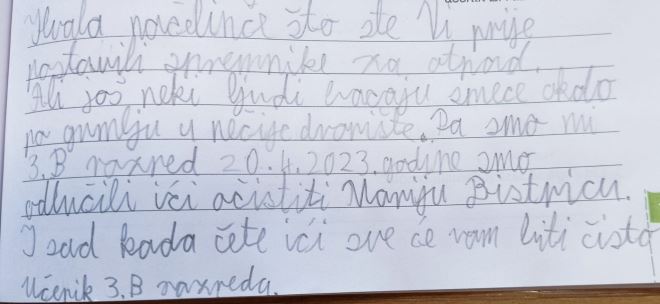 Hvala načelniće što ste Vi prije
postavili spremnike za otpad.
Ali još neki ljudi bacaju smeće okolo
po grmlju u nečije dvorište. Pa smo mi
3. B razred 20. 4. 2023. godine smo
odlučili ići očistiti Mariju Bistricu.
I sad kada ćete ići sve će vam biti čisto
Učenik 3. B razreda.